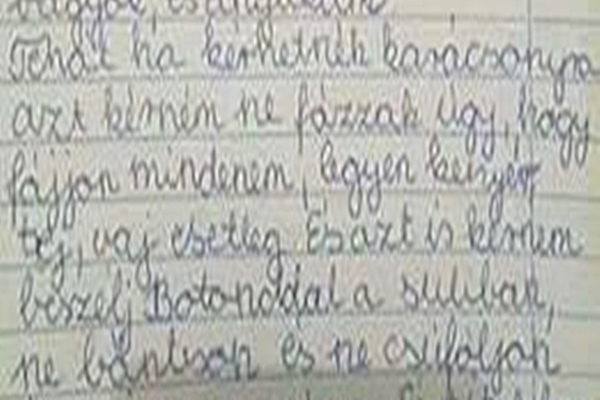 Tehát ha kérhetnék karácsonyra
azt kérném ne fázzak úgy, hogy
fájjon mindenem, legyen kenyér,
tej, vaj esetleg. És azt is kérném
beszélj Botonddal a suliban,
ne bántson és ne csúfoljon